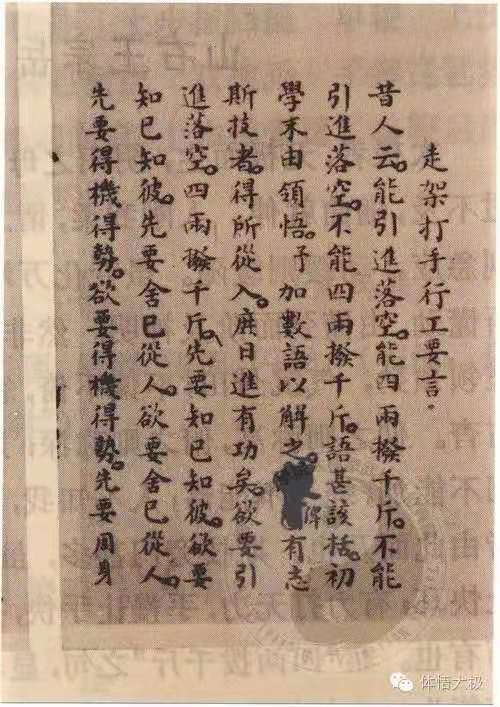 走架打手行工要言。
昔人云。能引進落空。能四兩撥千斤。不能
引進落空。不能四兩撥千斤。語甚該括。初
學未由領悟。予加數語以解之。俾有志
斯技者。得所從入。庶日進有功矣。欲要引
進落空。四兩撥千斤。先要知已知彼。欲要
知已知彼。先要舍已從人。欲要舍已從人。
先要得機得勢。欲要得機得勢。先要周身
山右王宗岳
体悟太极